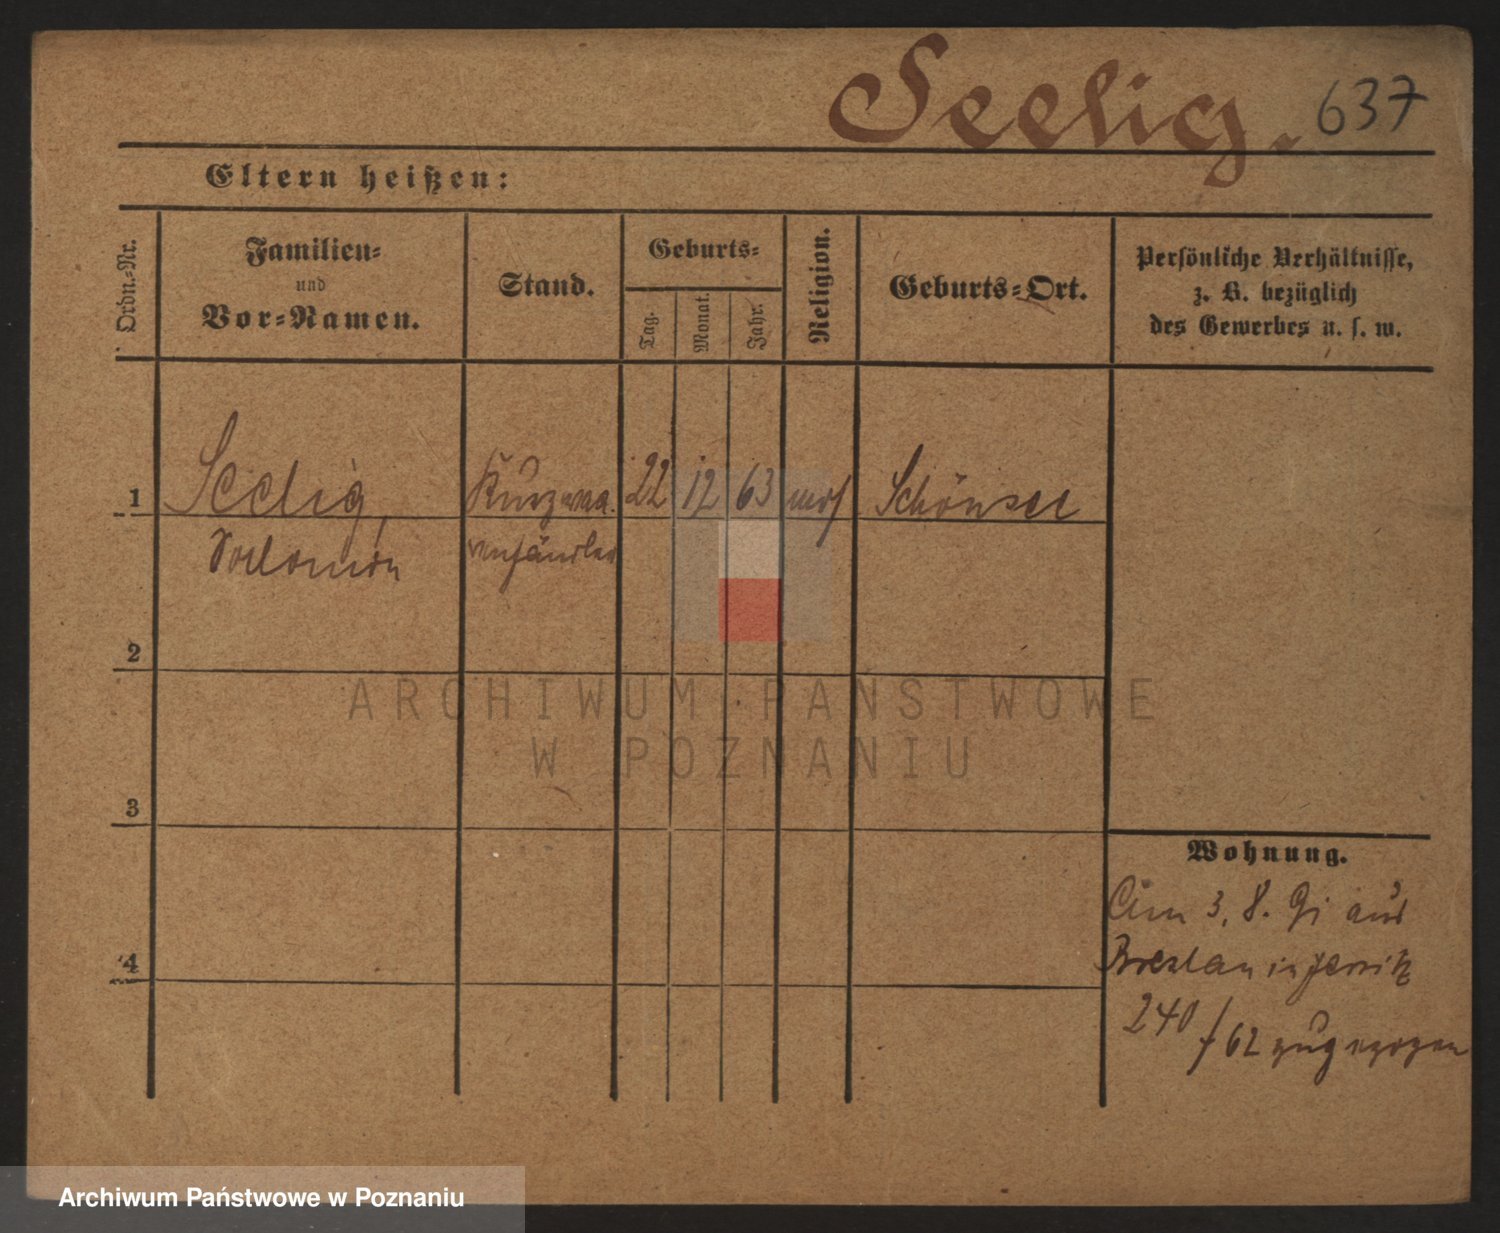 Seelig. 637
Eltern heißen:
Ordn.-Nr.
Familien-
und
Vor-Namen.
Stand.
Geburts-
Tag.
Monat.
Jahr.
Religion.
Geburts-Ort.
Persönliche Verhältnisse,
z. B. bezüglich
des Gewerbes u. s. w.
1 Seelig, Kurzwaa- 22 12 63 mos Schönsee
Salomon renhändler
2
3
4
Wohnung.
Am 3. 8. 91 aus
Breslau in Jersitz
240/62 zugezogen
ARCHIWUM PAŃSTWOWE
W POZNANIU
Archiwum Państwowe w Poznaniu